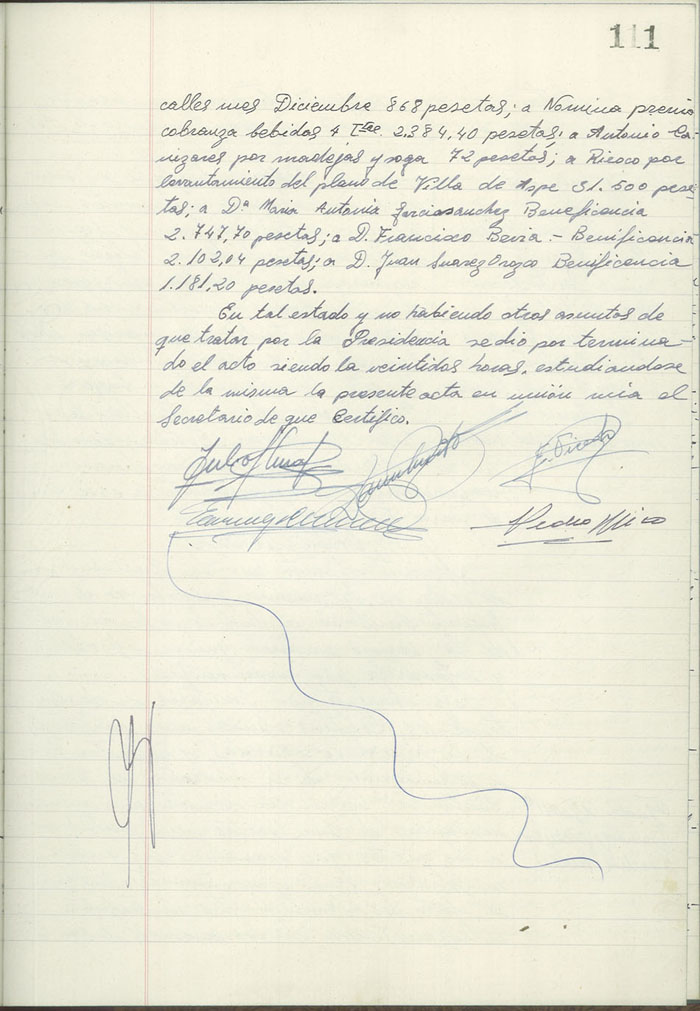 111
calles mes Diciembre 868 pesetas; a Nomina premio
cobranza bebidas 4 Tre. 2.384,40 pesetas; a Antonio Ca-
ñizares por madejas y soga 72 pesetas; a Ricoco por
levantamiento del plano de Villa de Aspe 31.500 pese-
tas; a Dª Maria Antonia Garciasanchez Beneficencia
2.747,70 pesetas; a D. Francisco Bevia.- Benificencia
2.102,04 pesetas; a D. Juan Suarez Orozco Benificencia
1.181,20 pesetas.
En tal estado y no habiendo otros asuntos de
que tratar por la Presidencia se dio por termina-
do el acto siendo la veintidos horas, estudiandose
de la misma la presente acta en unión mia el
Secretario de que Certifico.
Pedro Mico